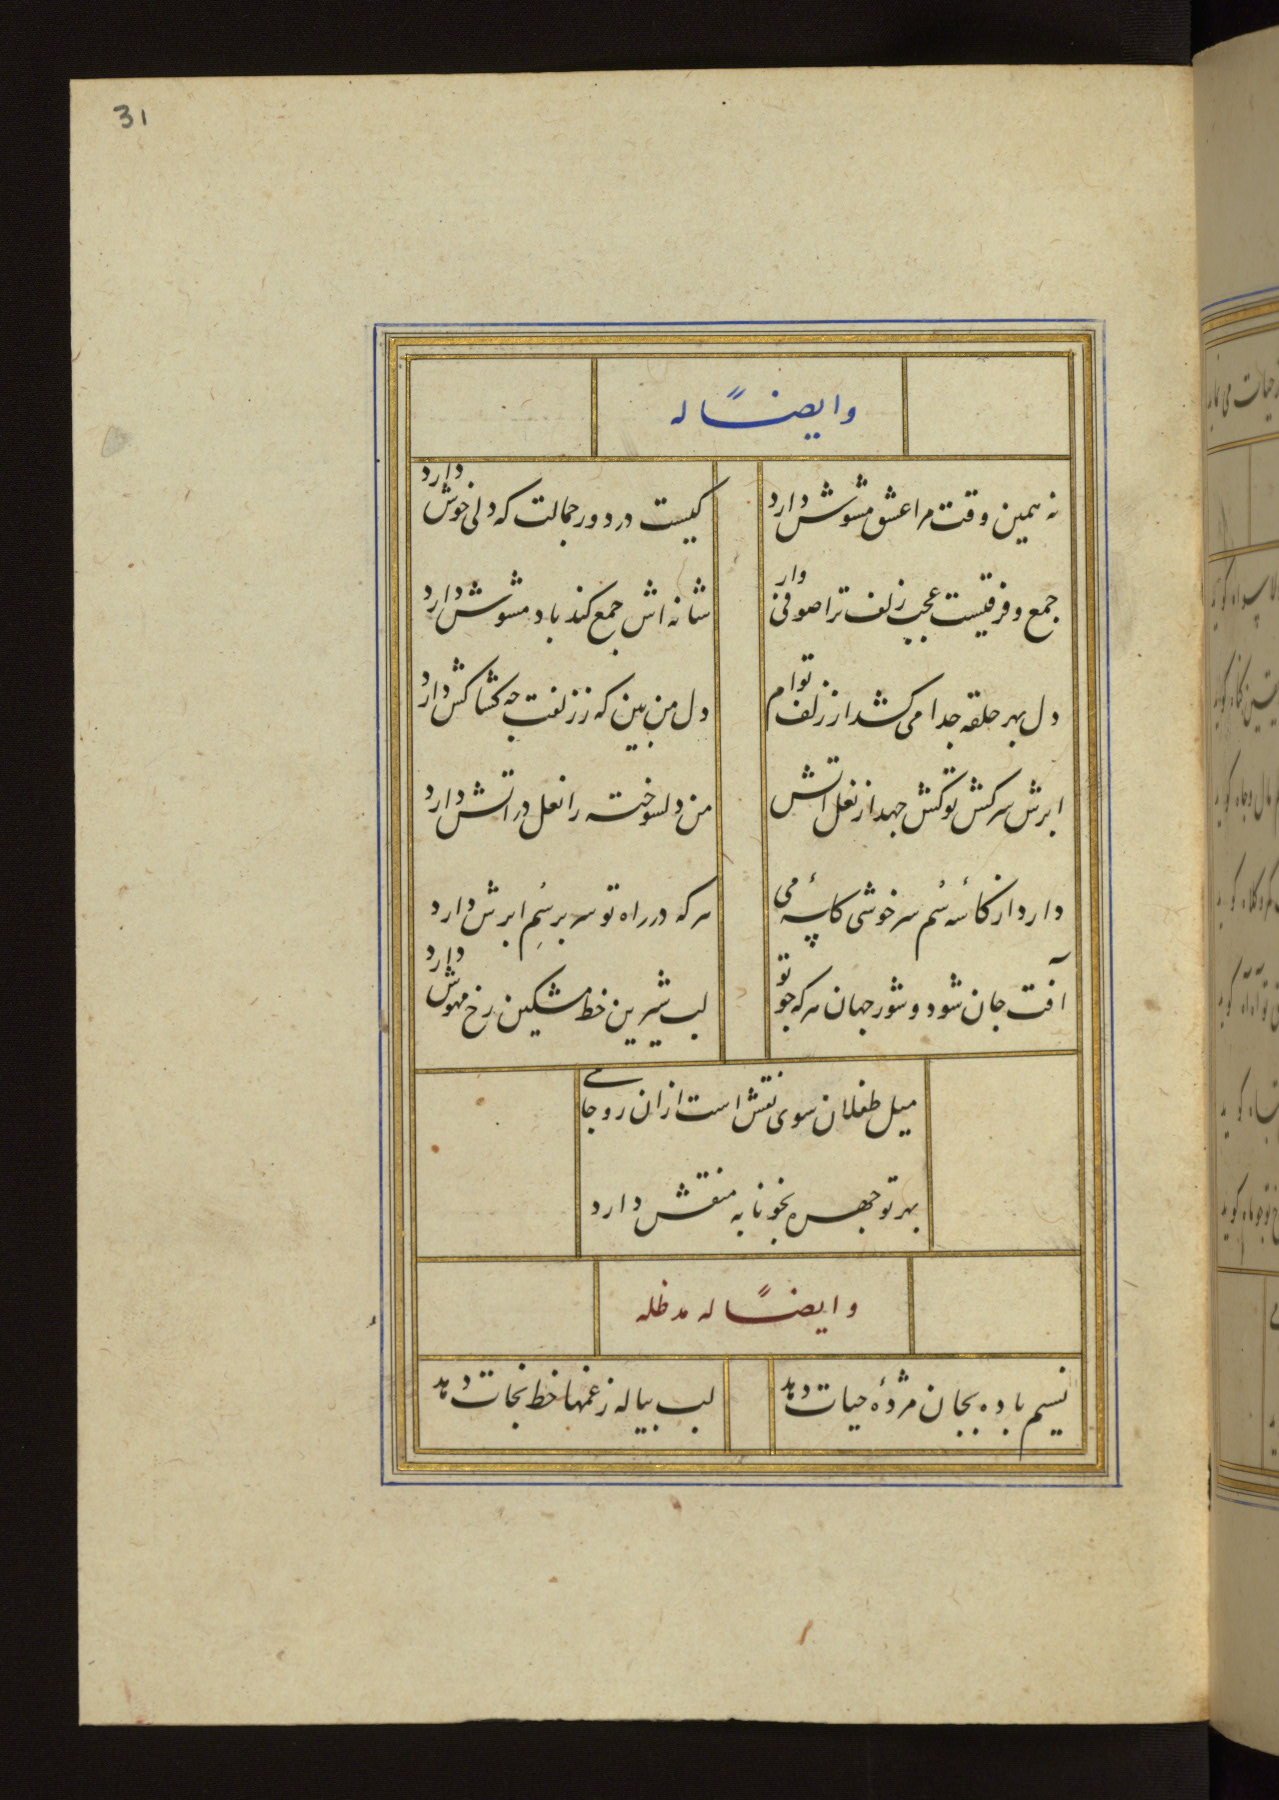 31
وایضاً له
نه همین وقت مرا عشق مشوش دارد
کیست در دور جمالت که دلی خوش دارد
جمع و فرقیست عجب زلف ترا صوفی وار
شانه اش جمع کند باد مشوش دارد
دل بهر حلقه جدا می کشد از زلف توام
دل من بین که ز زلفت چه کشاکش دارد
ابرش سرکش تو کش جهد از نعل آتش
من دلسوخته را نعل در آتش دارد
دارد از کاسهٔ سُم سرخوشی کاسهٔ می
هر که در راه تو سر بر سُمِ ابرش دارد
آفت جان شود و شور جهان هر که چو تو
لب شیرین خط مشکین رخ مهوش دارد
میل طفلان سوی نقش است از ان رو جامی
بهر تو چهره بخونابه منقش دارد
وایضاً له مد ظله
نسیم باده بجان مژدهٔ حیات دهد
لب پیاله ز غمها خط نجات دهد